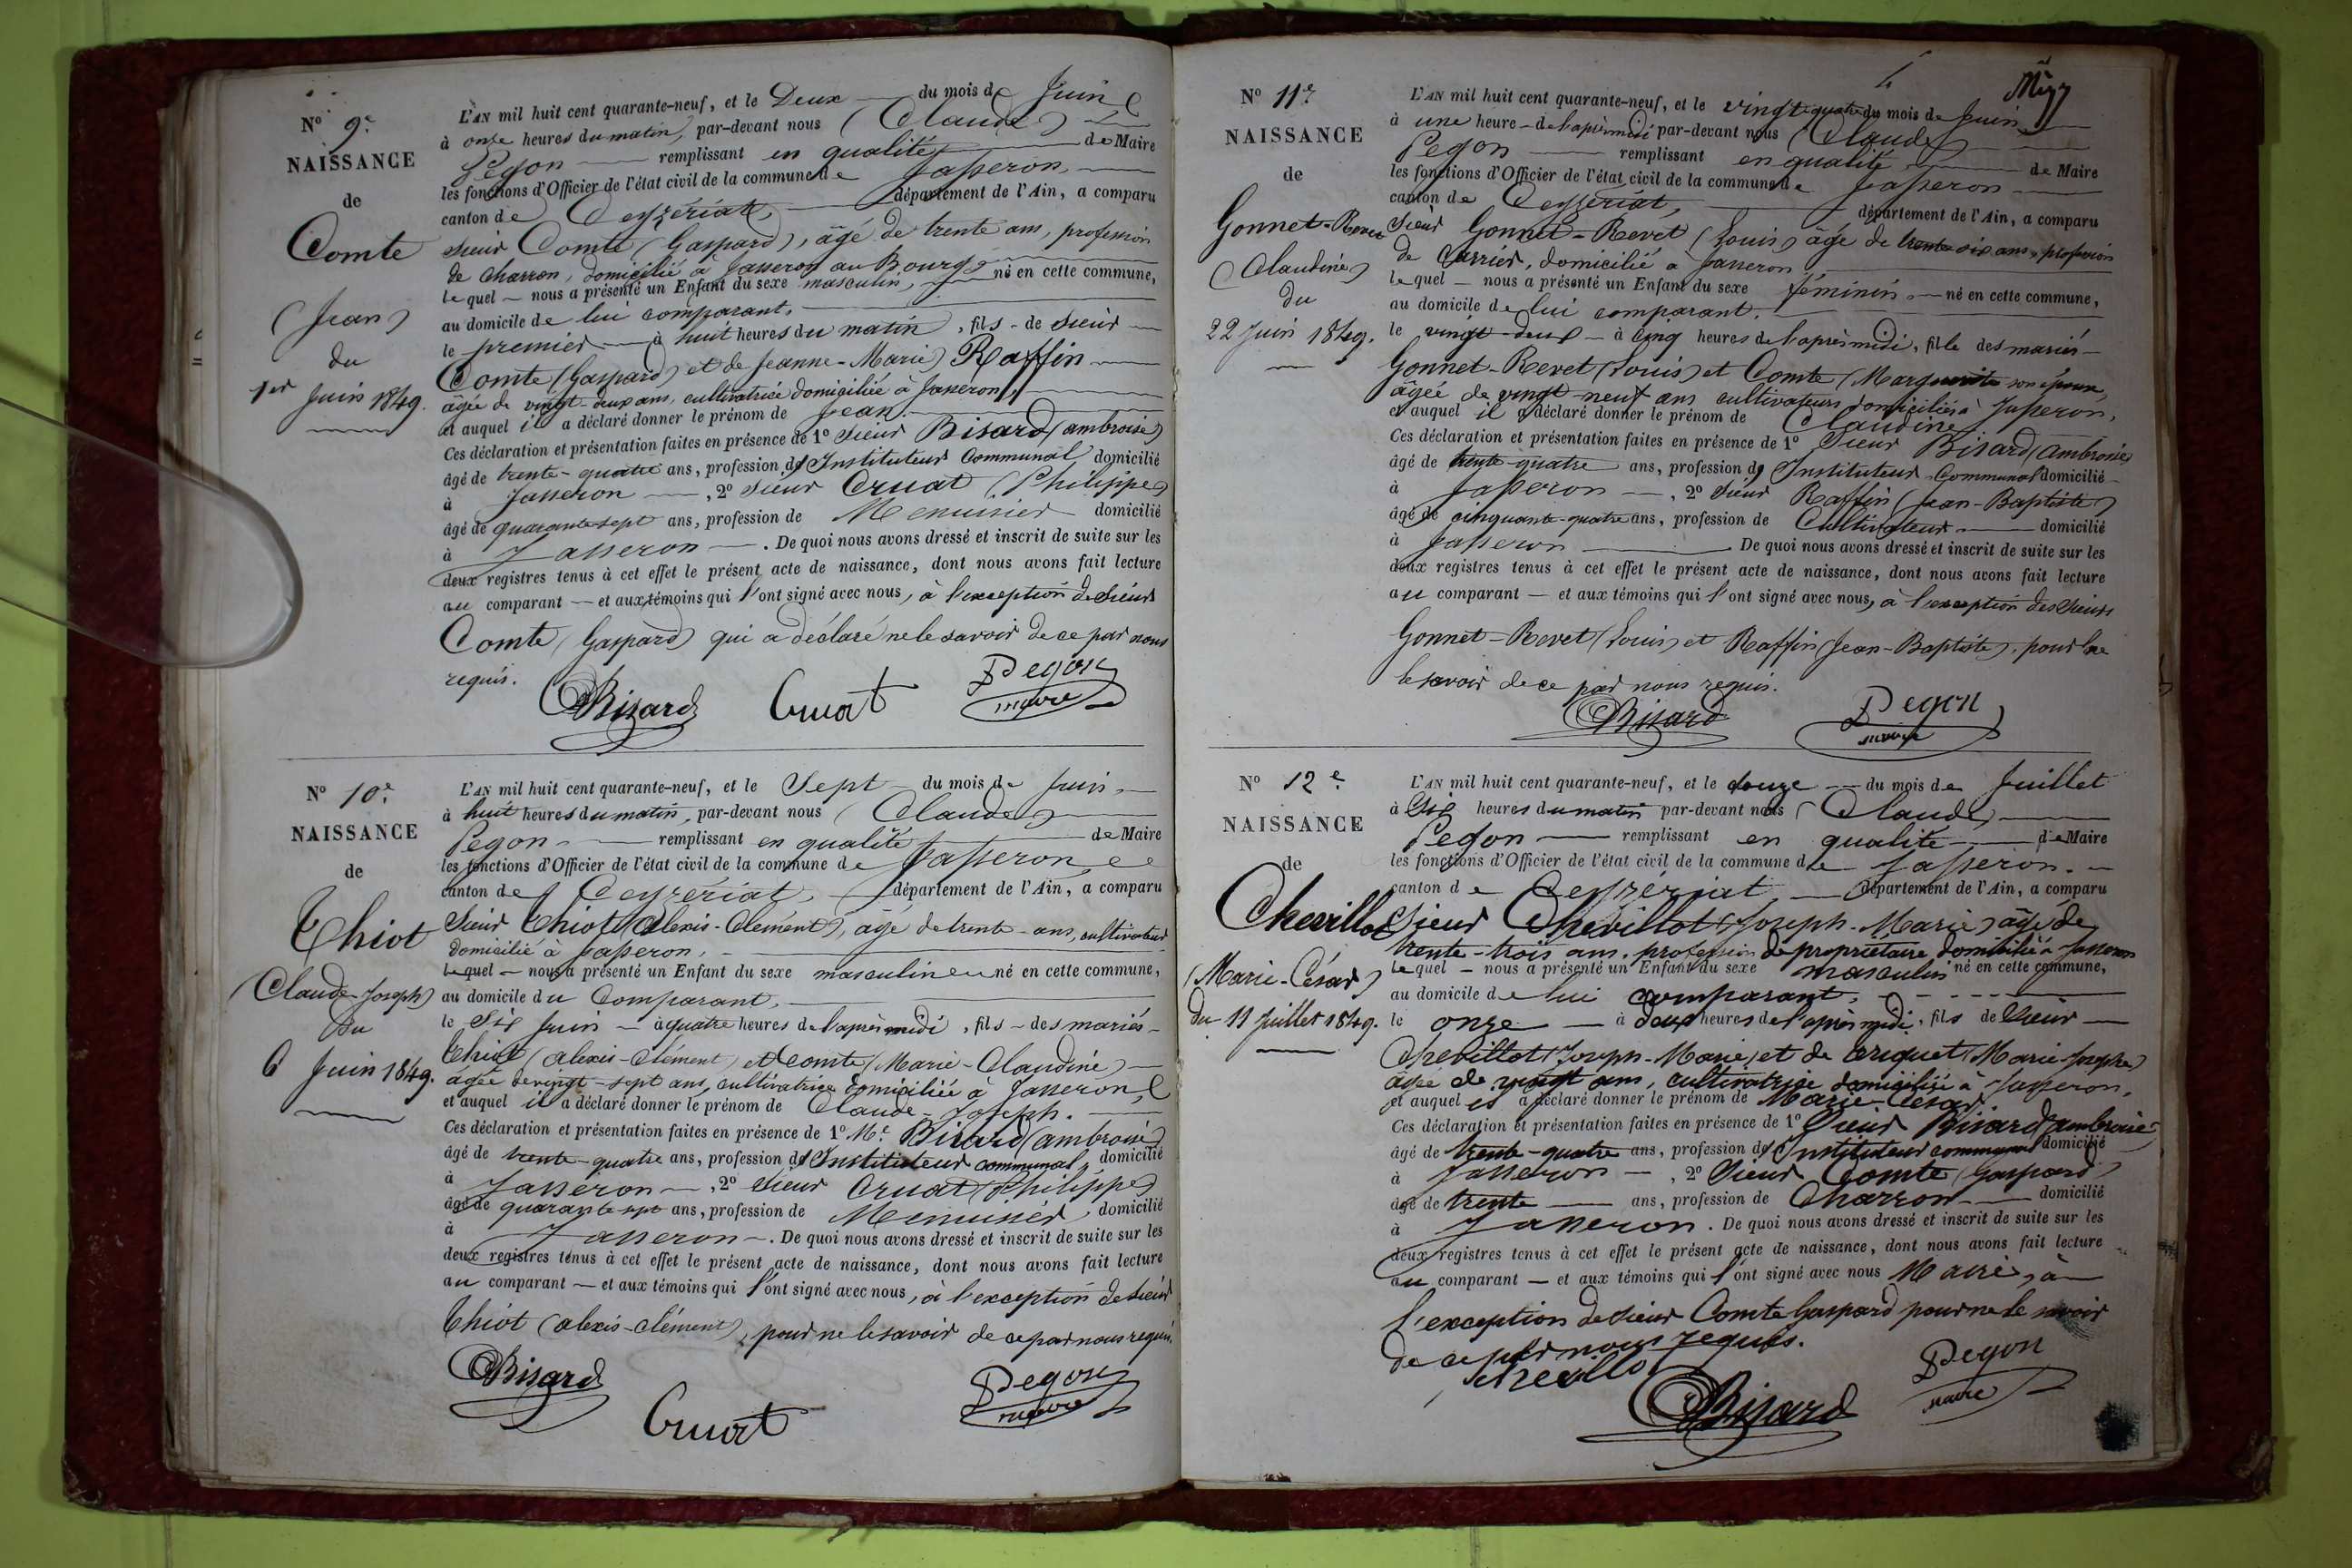 N° 9e
NAISSANCE
de
Comte
(Jean)
du
1er Juin 1849.
L'AN mil huit cent quarante-neuf, et le Deux du mois de Juin
à onze heures du matin, par-devant nous (Claude)
Pegon remplissant en qualité de Maire
les fonctions d'Officier de l'état civil de la commune de Jasseron
canton de Ceyzériat, département de l'Ain, a comparu
sieur Comte (Gaspard), âgé de trente ans, profession
de charron, domicilié à Jasseron au Bourg
lequel nous a présenté un Enfant du sexe masculin, né en cette commune,
au domicile de lui comparant,
le premier à huit heures du matin, fils de sieur
Comte (Gaspard) et de Jeanne-Marie Raffin
âgée de vingt-deux ans, cultivatrice domiciliée à Jasseron,
et auquel il a déclaré donner le prénom de Jean.
Ces déclaration et présentation faites en présence de 1° sieur Bisard (ambroise)
âgé de trente-quatre ans, profession d'Instituteur Communal domicilié
à Jasseron, 2° sieur Cruat (Philippe)
âgé de quarante sept ans, profession de Menuisier domicilié
à Jasseron. De quoi nous avons dressé et inscrit de suite sur les
deux registres tenus à cet effet le présent acte de naissance, dont nous avons fait lecture
au comparant et aux témoins qui l'ont signé avec nous, à l'exception de sieur
Comte (Gaspard) qui a déclaré ne le savoir de ce par nous
requis.
Bisard Cruat Pegon
maire
N° 10e
NAISSANCE
de
Thiot
(Claude-Joseph)
du
6 Juin 1849.
L'AN mil huit cent quarante-neuf, et le Sept du mois de Juin
à huit heures du matin, par-devant nous (Claude)
Pegon remplissant en qualité de Maire
les fonctions d'Officier de l'état civil de la commune de Jasseron
canton de Ceyzériat, département de l'Ain, a comparu
Sieur Thiot (Alexis-Clément), âgé de trente-ans, cultivateur
domicilié à Jasseron,
lequel nous a présenté un Enfant du sexe masculin né en cette commune,
au domicile du Comparant,
le Six Juin à quatre heures de l'après midi, fils des mariés
Thiot (Alexis-Clément) et Comte (Marie-Claudine)
âgée de vingt-sept ans, cultivatrice domiciliée à Jasseron,
et auquel il a déclaré donner le prénom de Claude-Joseph.
Ces déclaration et présentation faites en présence de 1° Mr. Bisard (ambroise)
âgé de trente-quatre ans, profession d'Instituteur communal, domicilié
à Jasseron, 2° Sieur Cruat (Philippe)
âgé de quarante sept ans, profession de Menuisier domicilié
à Jasseron. De quoi nous avons dressé et inscrit de suite sur les
deux registres tenus à cet effet le présent acte de naissance, dont nous avons fait lecture
au comparant et aux témoins qui l'ont signé avec nous, à l'exception de sieur
Thiot (alexis-clément), pour ne le savoir de ce par nous requis.
Bisard Pegon
Cruat maire
4
N° 11e
NAISSANCE
de
Gonnet-Revet
(Claudine)
du
22 Juin 1849.
L'AN mil huit cent quarante-neuf, et le vingt quatre du mois de Juin
à une heure de l'après midi par-devant nous (Claude)
Pegon remplissant en qualité de Maire
les fonctions d'Officier de l'état civil de la commune de Jasseron
canton de Ceyzériat, département de l'Ain, a comparu
Sieur Gonnet-Revet (Louis) âgé de trente six ans, profession
de Carrier, domicilié à Jasseron
lequel nous a présenté un Enfant du sexe féminin, né en cette commune,
au domicile de lui comparant.
le vingt-deux à cinq heures de l'après midi, fille des mariés
Gonnet-Revet (Louis) et Comte (Marguerite son épouse,
âgée de vingt-neuf ans cultivateurs domiciliés à Jasseron,
et auquel il a déclaré donner le prénom de Claudine
Ces déclaration et présentation faites en présence de 1° Sieur Bisard (Ambroise)
âgé de trente-quatre ans, profession d'Instituteur Communal domicilié
à Jasseron, 2° Sieur Raffin (Jean-Baptiste)
âgé de cinquante-quatre ans, profession de Cultivateur domicilié
à Jasseron De quoi nous avons dressé et inscrit de suite sur les
deux registres tenus à cet effet le présent acte de naissance, dont nous avons fait lecture
au comparant et aux témoins qui l'ont signé avec nous, à l'exception des sieurs
Gonnet-Revet (Louis) et Raffin (Jean-Baptiste), pour ne
le savoir de ce par nous requis.
Bisard Pegon
maire
N° 12e
NAISSANCE
de
Chevillot
(Marie-César)
du 11 Juillet 1849.
L'AN mil huit cent quarante-neuf, et le douze du mois de Juillet
à Six heures du matin par-devant nous (Claude)
Pegon remplissant en qualité de Maire
les fonctions d'Officier de l'état civil de la commune de Jasseron.
canton de Ceyzériat département de l'Ain, a comparu
Sieur Chevillot (Joseph-Marie) âgé de
trente-trois ans, profession de propriétaire domicilié à Jasseron
lequel nous a présenté un Enfant du sexe masculin né en cette commune,
au domicile de lui comparant,
le onze à deux heures de l'après midi, fils de Sieur
Chevillot (Joseph-Marie) et de Criquet (Marie Josephe)
âgée de vingt ans, cultivatrice domiciliée à Jasseron,
et auquel il a déclaré donner le prénom de Marie-César
Ces déclaration et présentation faites en présence de 1° Sieur Bisard (ambroise)
âgé de trente-quatre ans, profession d'Instituteur communal domicilié
à Jasseron, 2° Sieur Comte (Gaspard)
âgé de trente ans, profession de Charron domicilié
à Jasseron. De quoi nous avons dressé et inscrit de suite sur les
deux registres tenus à cet effet le présent acte de naissance, dont nous avons fait lecture
au comparant et aux témoins qui l'ont signé avec nous Maire, à
l'exception de sieur Comte Gaspard pour ne le savoir
de ce par nous requis.
Chevillot Pegon
Bisard maire